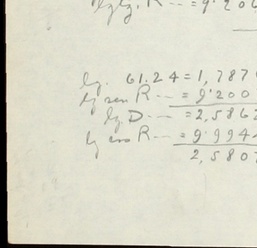 lg lg. R -- = 9'206
lg. 61.24 = 1,787
lg sen R --- = 9'200
lg D --- = 2,5862
lg cos R --- = 9'994
2,5807